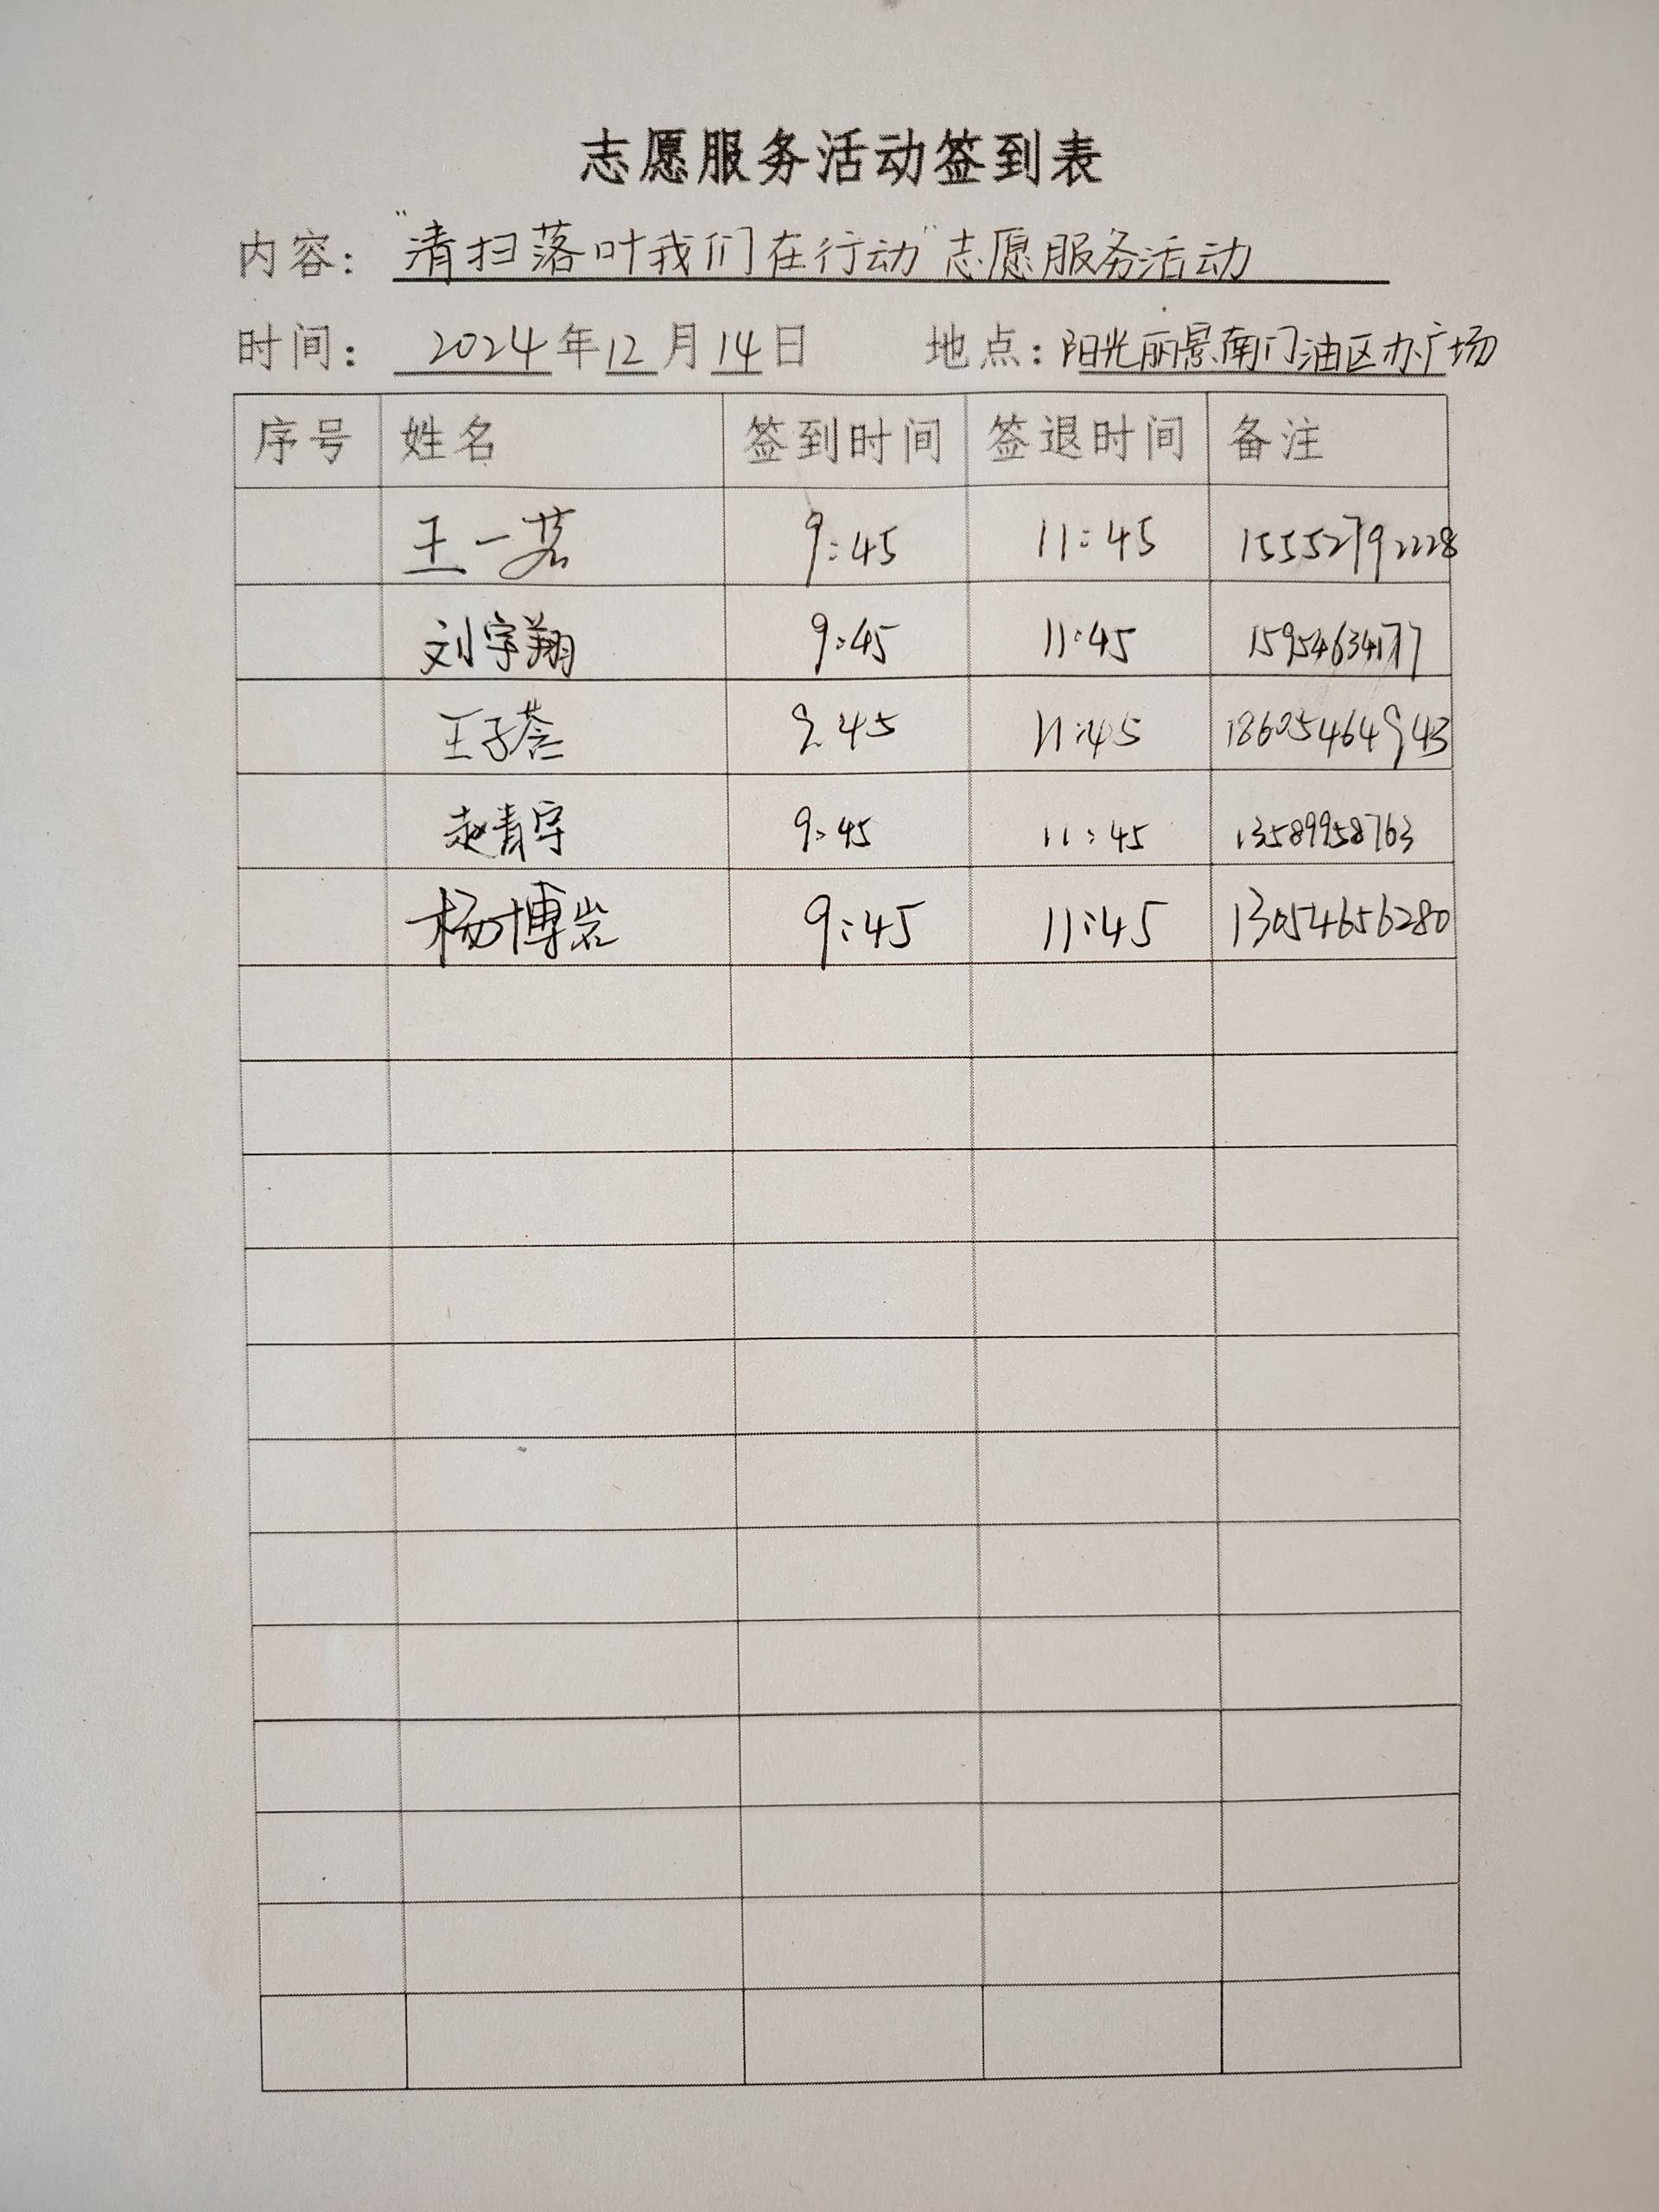 志愿服务活动签到表
内容： “清扫落叶我们在行动”志愿服务活动
时间： 2024年12月14日 地点：阳光丽景南门油区办广场
序号 姓名 签到时间 签退时间 备注
王一茗 9:45 11:45 15552792228
刘宇翔 9:45 11:45 15954634177
王子 9:45 11:45 18605464943
赵青宇 9:45 11:45 13589958763
杨博岩 9:45 11:45 13054656280